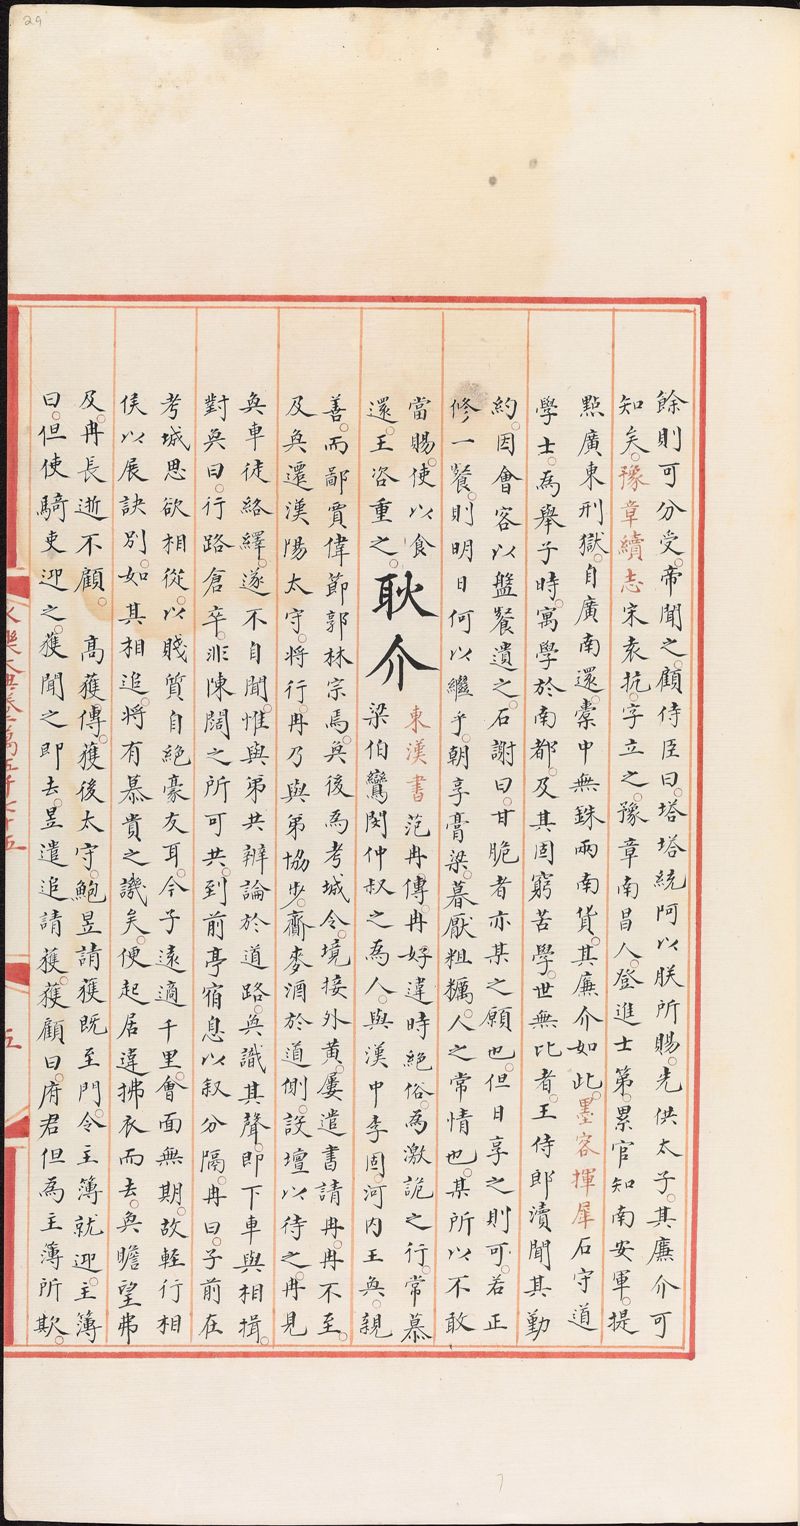 29
餘則可分受。帝聞之。顧侍臣曰。塔塔統阿以朕所賜。先供太子。其廉介可
知矣。豫章續志宋袁抗。字立之。豫章南昌人。登進士第。累官知南安軍。提
點廣東刑獄。自廣南還。橐中無銖兩南貨。其廉介如此。墨客揮犀石守道
學士。為舉子時。寓學於南都。及其固窮苦學。世無比者。王侍郎瀆聞其勤
約。因會客以盤餐遺之。石謝曰。甘脆者亦某之願也。但日享之則可。若正
修一餐。則明日何以繼乎。朝享膏粱。暮厭粗糲。人之常情也。某所以不敢
當賜。使以食
還。王咨重之。
耿介
東漢書范冉傳。冉好違時絕俗。為激詭之行。常慕
梁伯鸞閔仲叔之為人。與漢中李固。河內王奐。親
善。而鄙賈偉節郭林宗焉。奐後為考城令。境接外黃。屢遣書請冉。冉不至。
及奐遷漢陽太守。將行。冉乃與弟協步。齎麥酒於道側。設壇以待之。冉見
奐車徒絡繹。遂不自聞。惟與弟共辯論於道路。奐識其聲。即下車與相揖。
對奐曰。行路倉卒。非陳闊之所可共。到前亭宿息。以叙分隔。冉曰。子前在
考城思欲相從。以賤質自絕豪友耳。今子遠適千里。會面無期。故輕行相
侯以展訣別。如其相追。將有慕貴之譏矣。便起居違拂衣而去。奐瞻望弗
及。冉長逝不顧。 高獲傳。獲後太守。鮑昱請獲既至門。令主簿就迎。主簿
曰。但使騎吏迎之。獲聞之即去。昱遣追請獲。獲顧曰。府君但為主簿所欺。
永樂大典卷二萬五千七十五
五